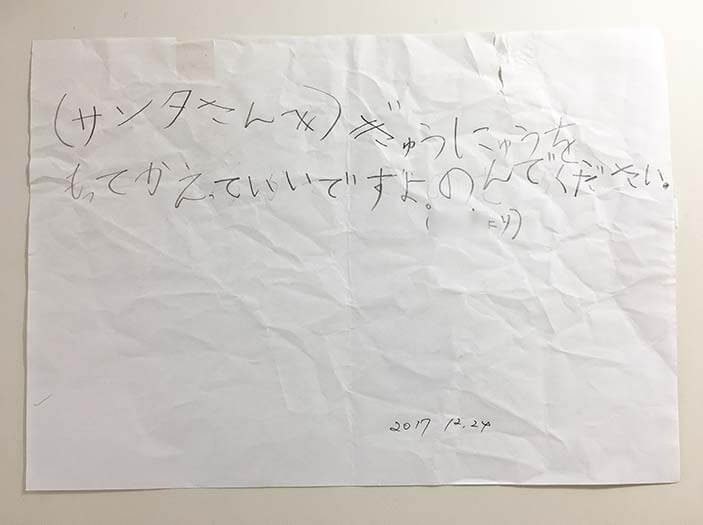 (サンタさんへ)ぎゅうにゅうを
もってかえっていいですよ。のんでください。
より)
2017 12.24